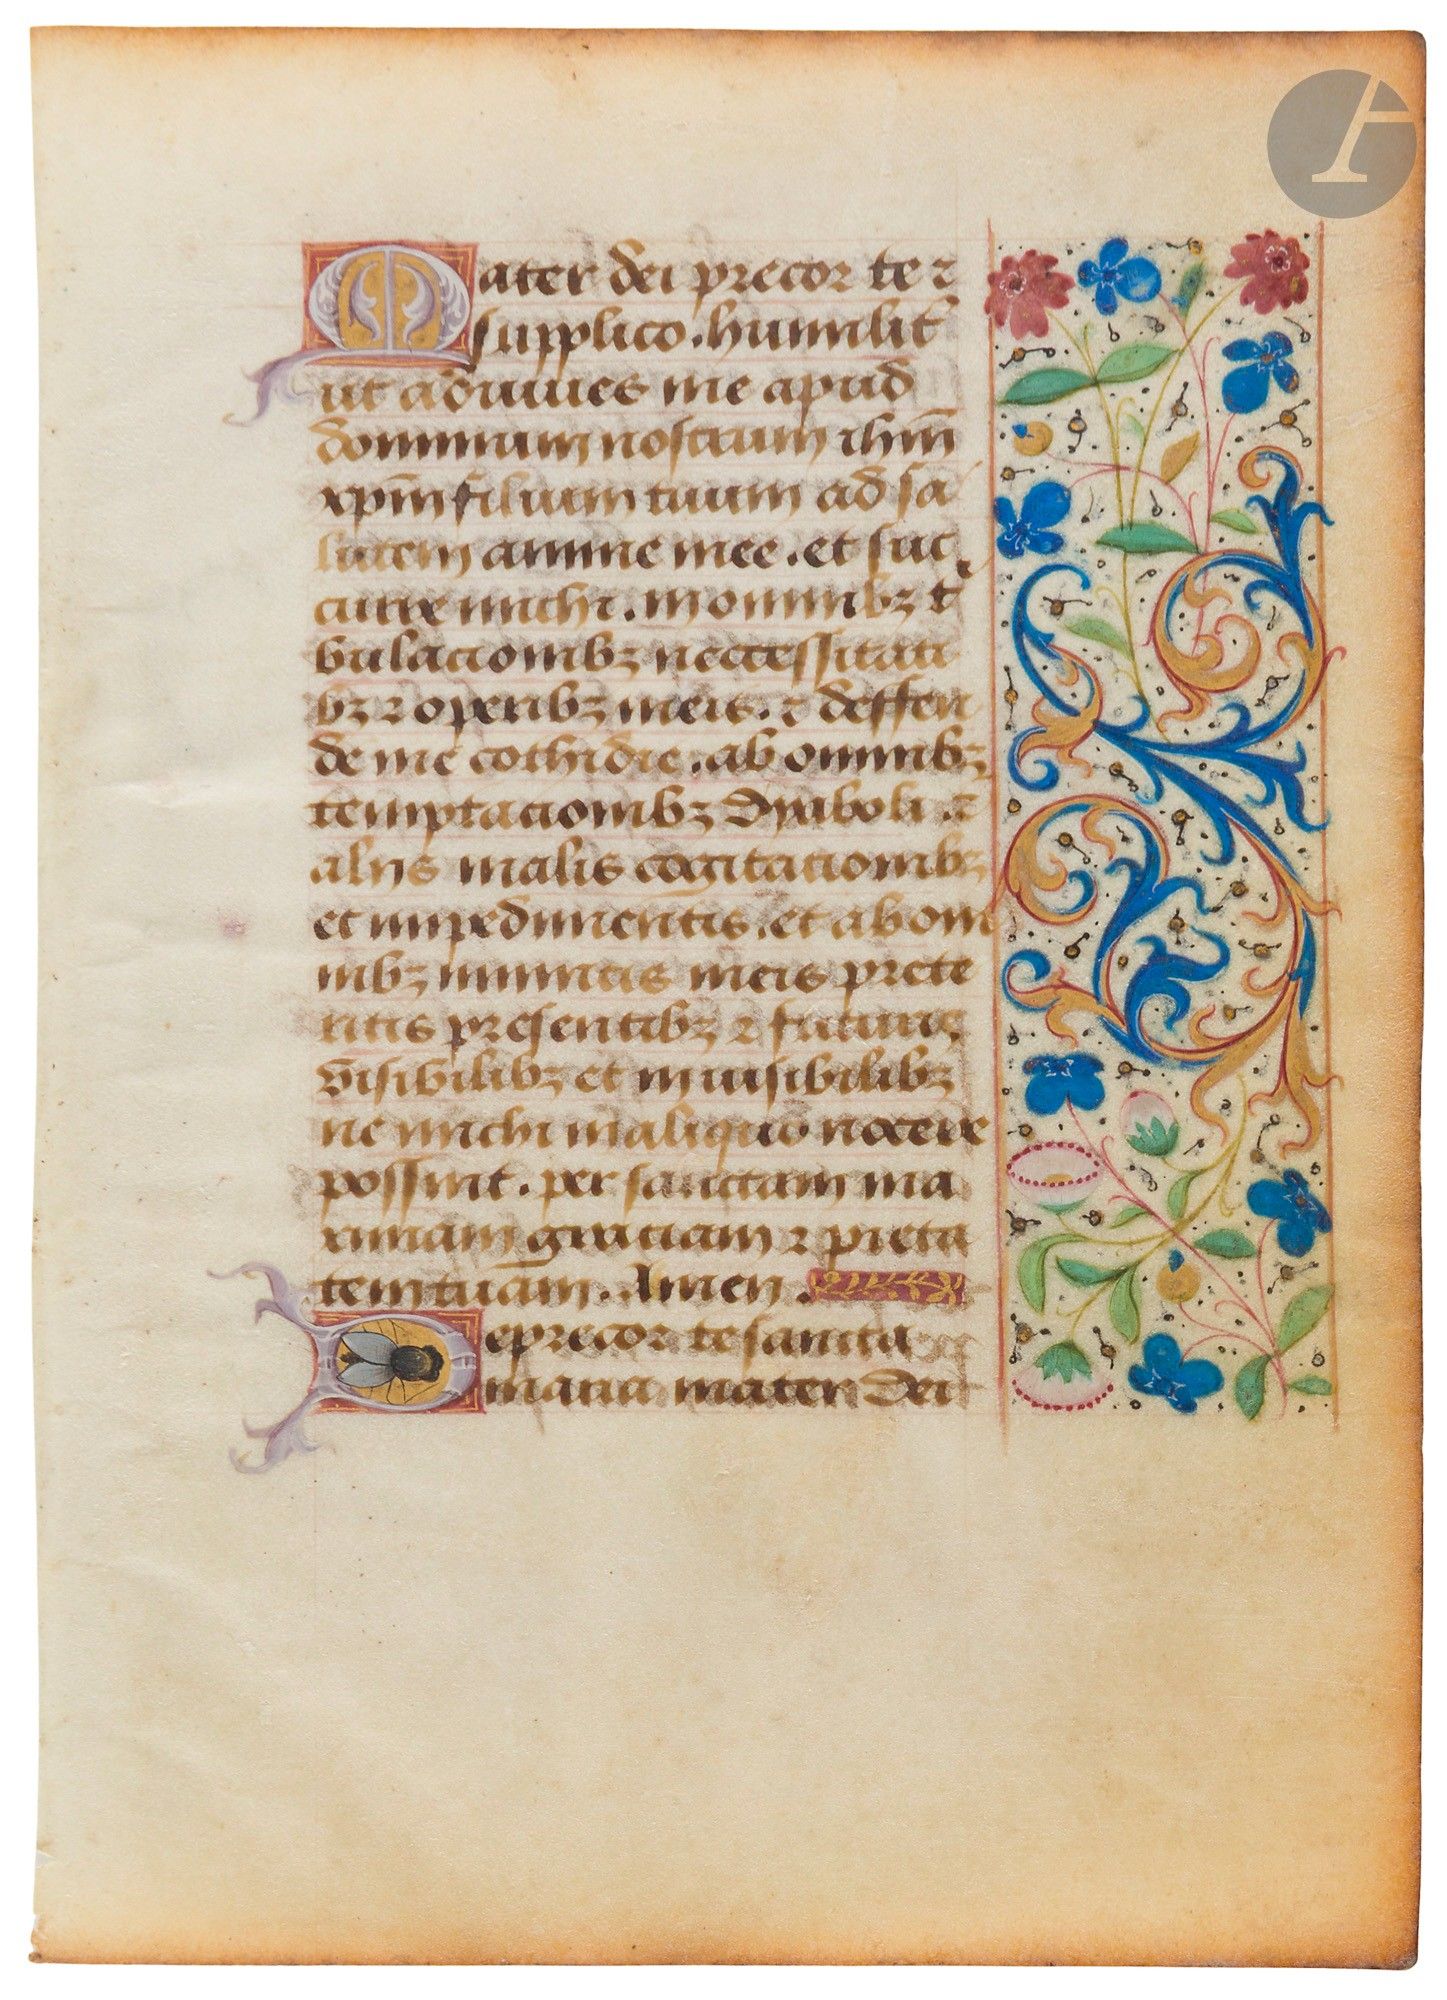 Mater dei precor te ⁊
supplico. humilit̄
ut adiuves me apud
dominum nostrum ihm̄
xpm̄ filium tuum ad sa
lutem anime mee. et suc
curre michi. in omnibꝫ t
bulacionibꝫ neccessitati
bꝫ ⁊ operibꝫ meis. ⁊ deffen
de me cothidie. ab omnibꝫ
temptacionibꝫ dyaboli ⁊
alijs malis cogitacionibꝫ
et impedimentis. et ab om
nibꝫ inimicis meis prete
ritis presentibꝫ ⁊ futuris
visibilibꝫ et invisibilibꝫ
ne michi in aliquo nocere
possint. per sanctam ma
ximam graciam ⁊ pieta
tem tuam. Amen.
Deprecor te sancta
maria mater dei